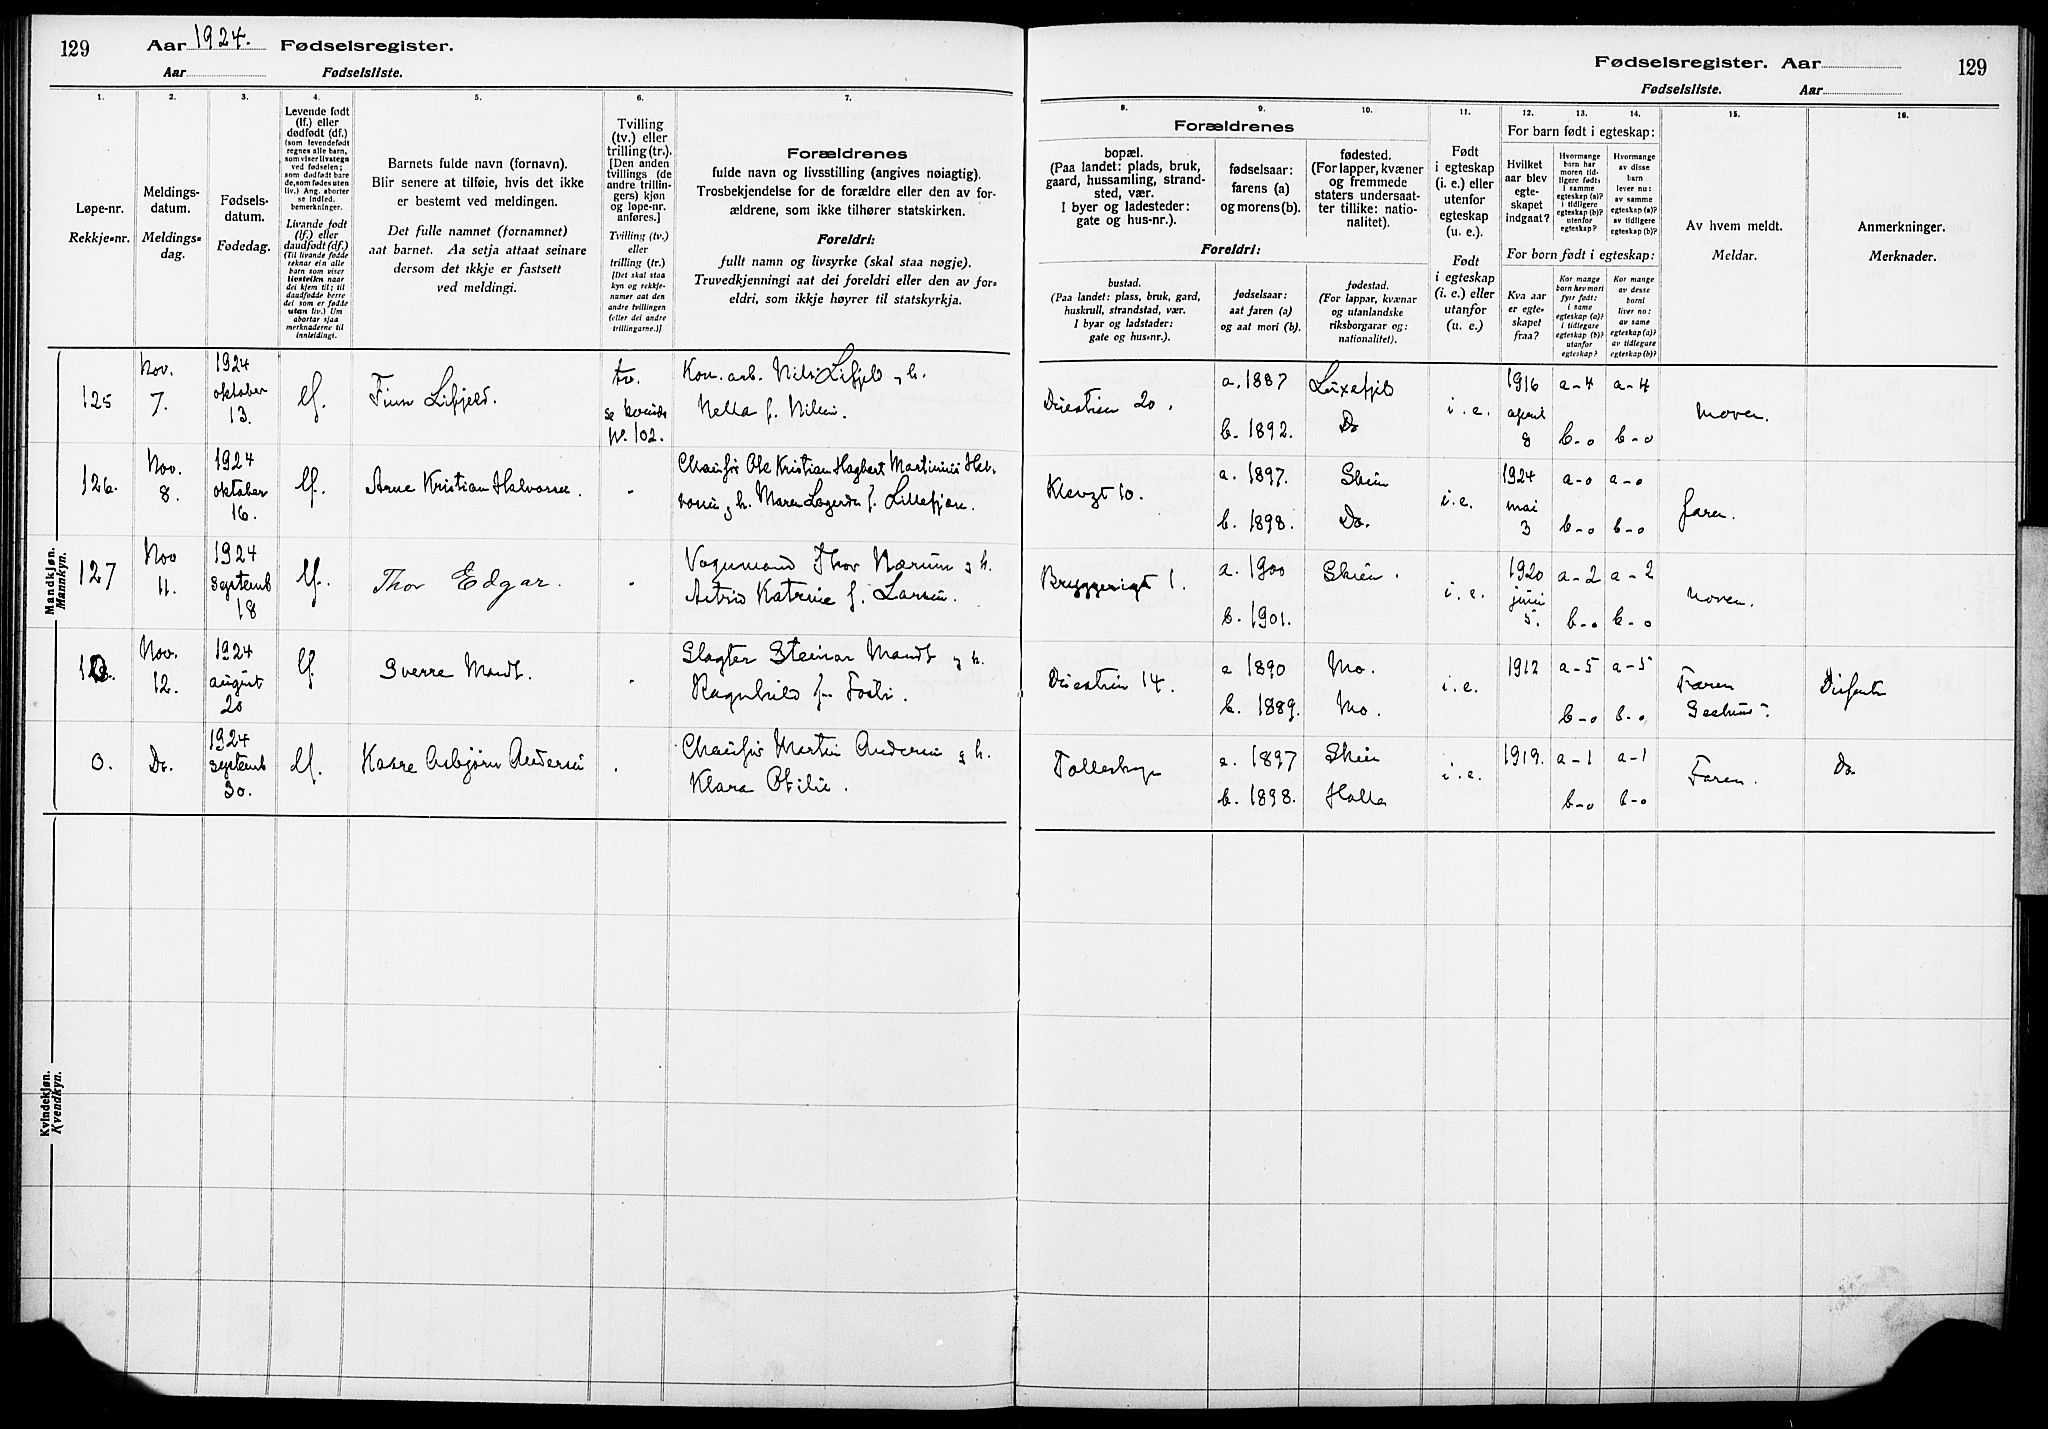 129
Aar 1924. Fødselsregister.
Aar Fødselsliste.
1.
2.
3.
4.
5.
6.
7.
Løpe-nr.
Rekkje-nr.
Meldings-
datum.
Meldings-
dag.
Fødsels-
datum.
Fødedag.
Levende født
(lf.) eller
dødfødt (df.)
(som levendefødt
regnes alle barn,
som viser livstegn
ved fødselen;
som dødfødt bare
de, som fødes uten
liv.) Ang. aborter
se indled.
bemerkninger.
Livande født
(lf.) eller
daudfødt (df.)
(Til livande fødde
reknar ein alle
barn som viser
livsteikn naar
dei kjem til; til
daudfødde berre
dei som er fødde
utan liv.) Um
abortar sjaa
merknaderne til
innleidingi.
Barnets fulde navn (fornavn).
Blir senere at tilføie, hvis det ikke
er bestemt ved meldingen.
Det fulle namnet (fornamnet)
aat barnet. Aa setja attaat seinare
dersom det ikkje er fastsett
ved meldingi.
Tvilling
(tv.) eller
trilling (tr.).
[Den anden
tvillings (de
andre trillin-
gers) kjøn
og løpe-nr.
anføres.]
Tvilling (tv.)
eller
trilling (tr.)
[Det skal staa
kyn og rekkje-
numer aat den
andre tvillingen
(eller dei andre
trillingarne.)]
Forældrenes
fulde navn og livsstilling (angives nøiagtig).
Trosbekjendelse for de forældre eller den av for-
ældrene, som ikke tilhører statskirken.
Foreldri:
fullt namn og livsyrke (skal staa nøgje).
Truvedkjenningi aat dei foreldri eller den av for-
eldri, som ikkje høyrer til statskyrkja.
Mandkjøn.
Mannkyn.
125
Nov.
7.
1924
oktober
13.
lf.
Finn Lifjeld.
tv.
se kvinde
Nº 102.
Kon. arb. Nils Lifjeld g h.
Nella f. Nilsen.
126.
Nov.
8.
1924
oktober
16.
lf.
Arne Kristian Halvorsen.
"
Chaufør Ole Kristian Hagbert Martinius Hal-
vorsen g h. Maren Lagerda f. Lillefjære.
127
Nov
11.
1924
Septemb
18
lf.
Thor Edgar.
"
Vognmand Thor Nærum g h.
Astrid Katrine f. Larsen.
Nov.
12.
1924
august
20
lf
Sverre Mandt.
"
Slagter Steinar Mandt g h.
Ragnhild f.
0.
Do.
1924
Septemb
30.
lf.
Kaare Asbjørn Andersen
"
Chaufør Martin Andersen g h.
Klara Otilie.
Kvindekjøn.
Kvendkyn.
Fødselsregister. Aar
129
Fødselsliste. Aar
8.
9.
10.
11.
12.
13.
14.
15.
16.
Forældrenes
bopæl.
(Paa landet: plads, bruk,
gaard, hussamling, strand-
sted, vær.
I byer og ladesteder:
gate og hus-nr.).
fødselsaar:
farens (a)
og morens (b).
fødested.
(For lapper, kvæner
og fremmede
staters undersaat-
ter tillike: natio-
nalitet).
Foreldri:
bustad.
(Paa landet: plass, bruk, gard,
huskrull, strandstad, vær.
I byar og ladstader:
gate og hus-nr.).
fødselsaar:
aat faren (a)
og aat mori (b).
fødestad.
(For lappar, kvænar
og utanlandske
riksborgarar og:
nationalitet).
Født
i egteskap
(i. e.) eller
utenfor
egteskap
(u. e.).
Født
i egteskap
(i. e.) eller
utanfor
(u. e.)
For barn født i egteskap:
Hvilket
aar blev
egte-
skapet
indgaat?
Hvormange
barn har
moren tid-
ligere født:
i samme
egteskap (a)?
i tidligere
egteskap (b)?
utenfor
egteskap?
Hvormange
av disse
barn
lever nu:
av samme
egteskap (a)?
av tidligere
egteskap (b)?
For born født i egteskap:
Kva aar
er egte-
skapet
fraa?
Kor mange
born hev mori
fyrr født:
i same
egteskap (a)?
i tidlegare
egteskap (b)?
utanfor
egteskap?
Kor mange
av desse
borni
liver no:
av same
egteskap (a)?
av tidlegare
egteskap (b)?
Av hvem meldt.
Meldar.
Anmerkninger.
Merknader.
20.
a. 1887
b. 1892.
Luxefjeld
Do
i. e.
1916
april
8
a - 4
b - 0
a - 4
b - 0
Moren.
10.
a. 1897.
b. 1898.
Skien
Do.
i. e.
1924
mai
3
a - 0
b - 0
a - 0
b - 0
faren.
Bryggerigt 1.
a. 1900
b. 1901.
Skien.
i. e.
1920
juni
5.
a - 2
b - 0
a - 2
b - 0
Moren.
14.
a 1890
b. 1889.
Mo.
Mo.
i. e.
1912
a - 5
b - 0
a - 5
b - 0
Faren
Dissenter
Follestad
a. 1897
b. 1898.
Skien
Holla
i. e.
1919.
a - 1
b - 0
a - 1
b - 0
Faren.
Do